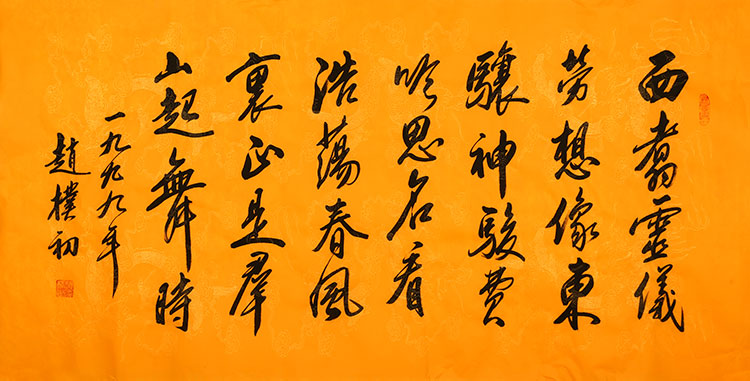 西翥靈儀
勞想像東
驤神駿費
吟思君看
浩蕩春風
裏正是羣
山起舞時
一九九九年
趙樸初